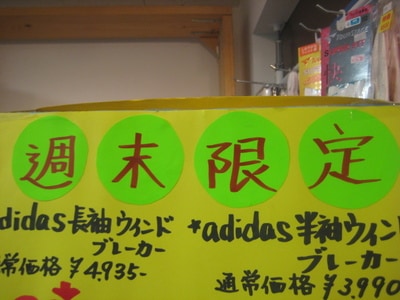 週末限定
didas長袖ウィンド
ブレーカー
常価格¥4,935-
+adidas半袖ウィン
ブレーカ
通常価格¥3,990